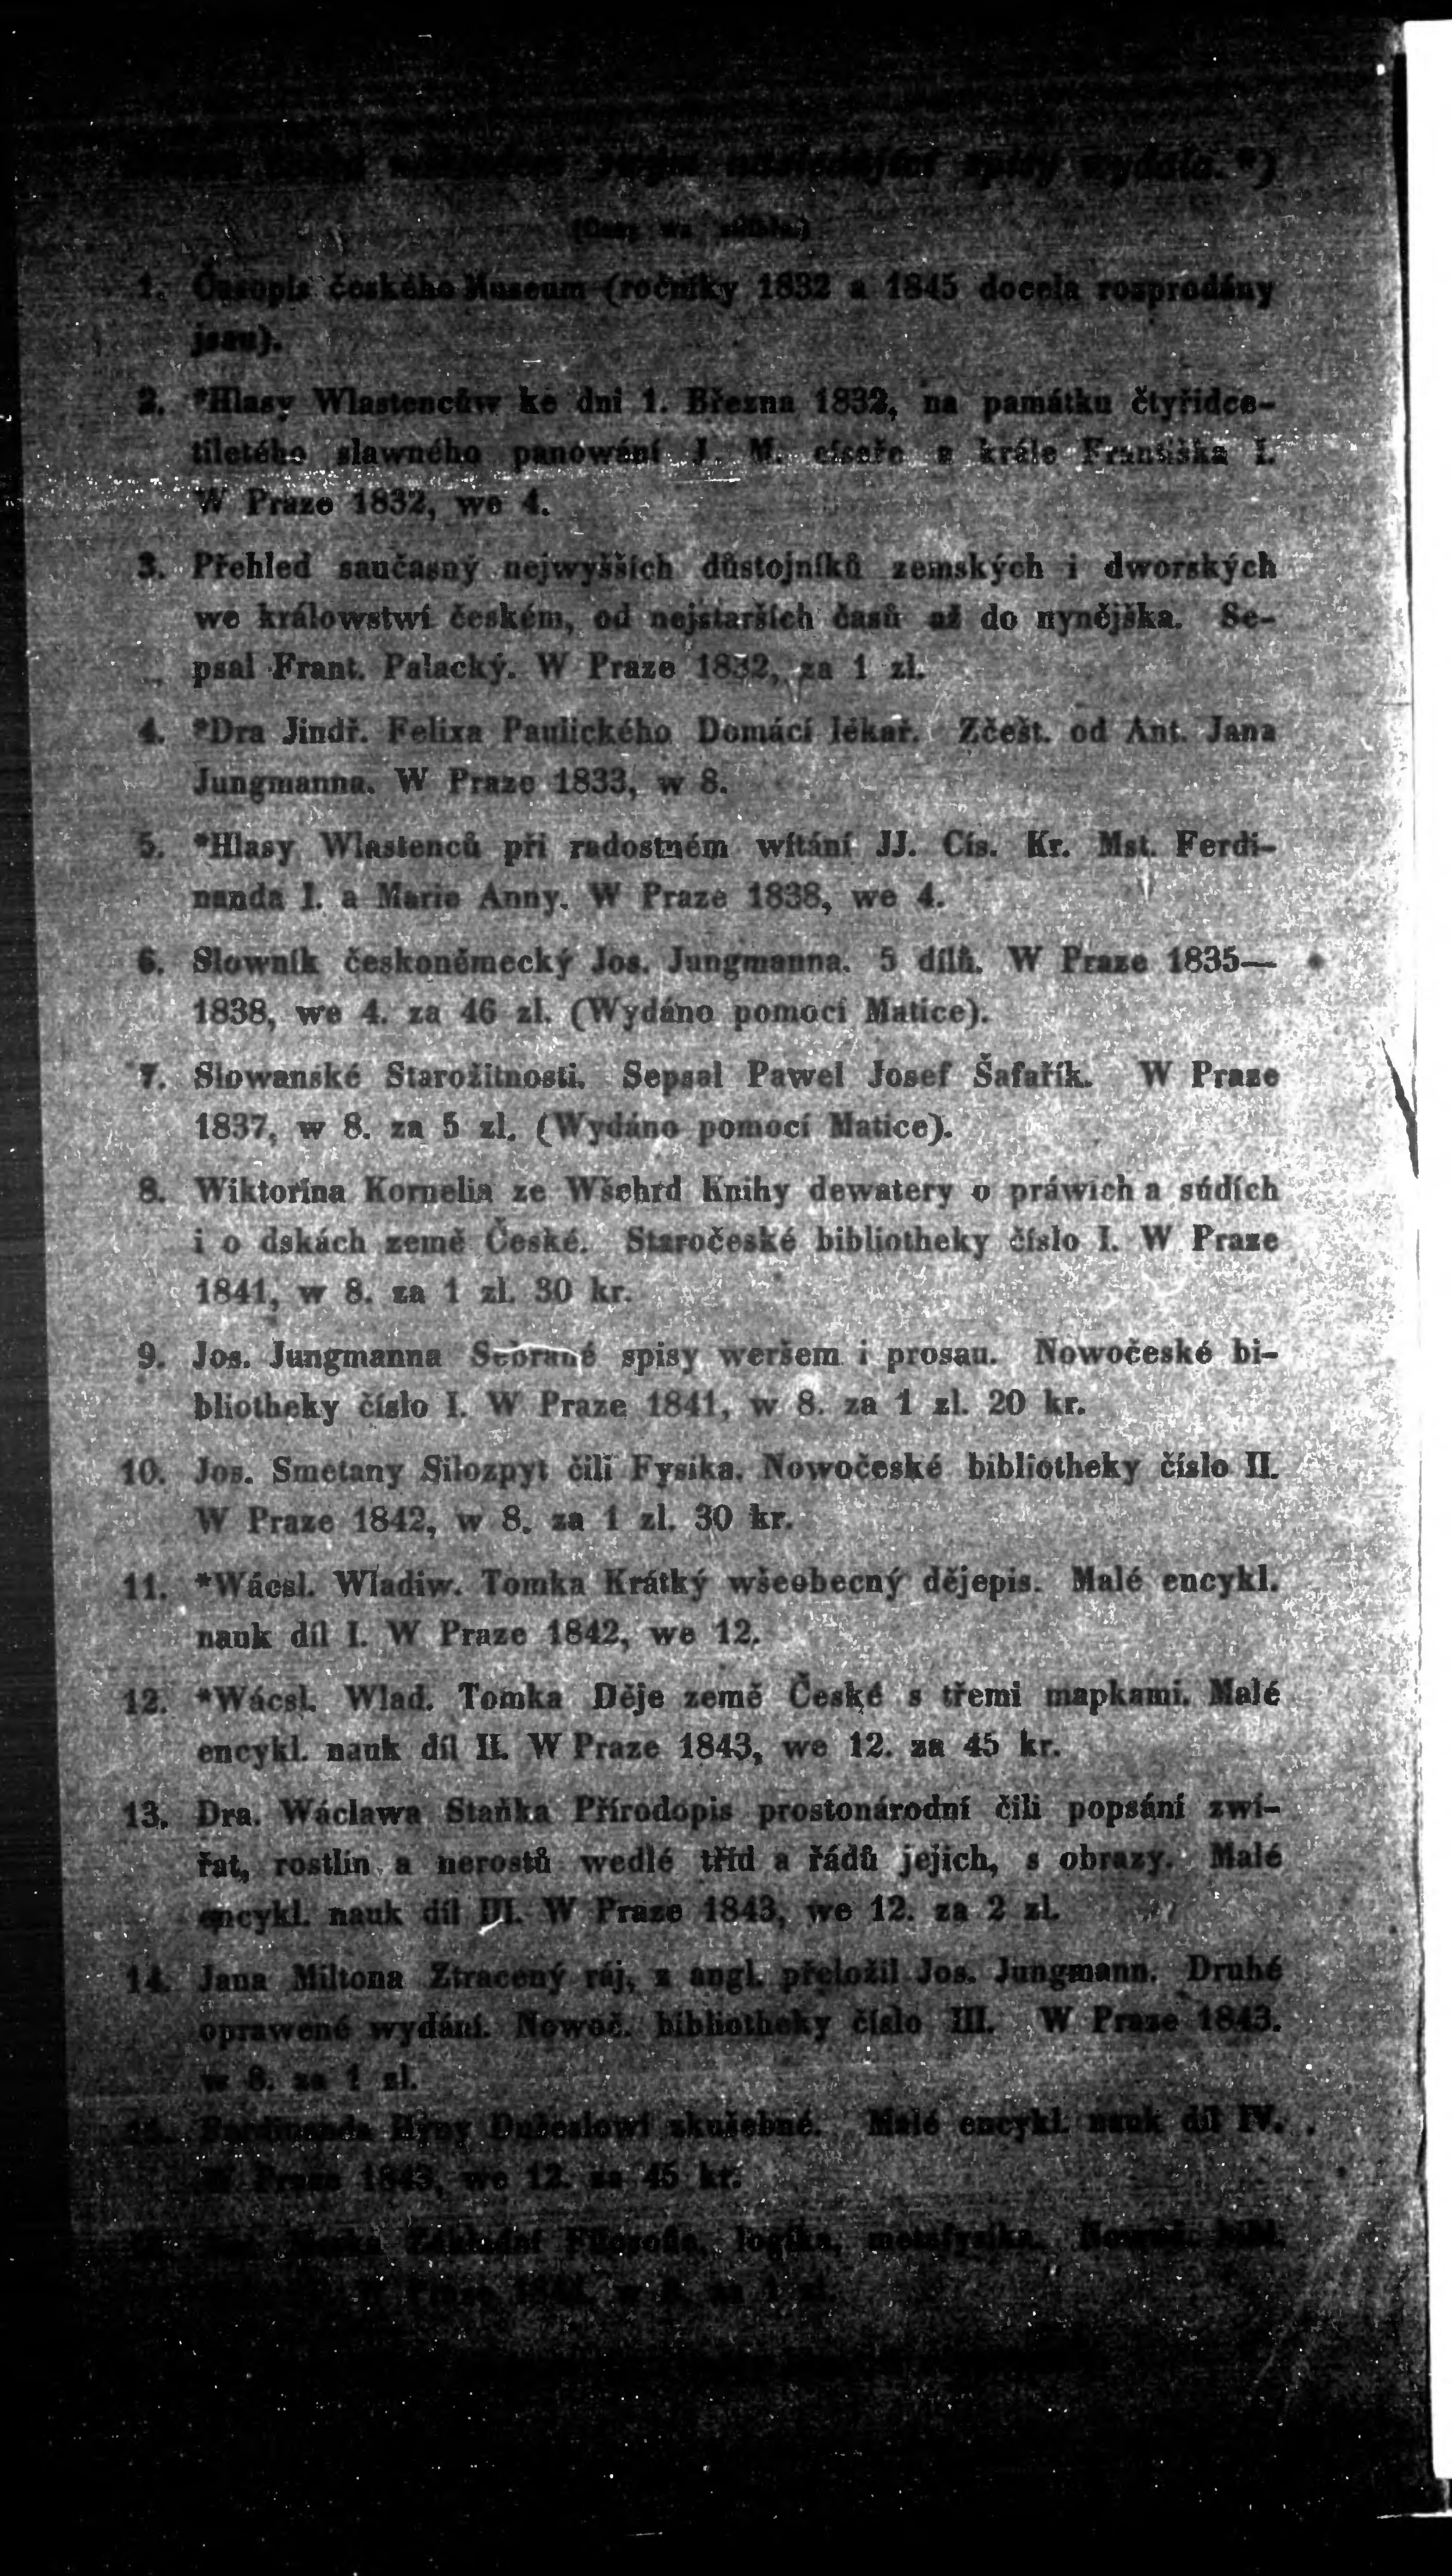 spisy wydala. *)
1. Časopis českého Museum (ročníky 1832 a 1845 docela rozprodány
jsau).
2. *Hlasy Wlastencůw ke dni 1. Března 1832, na památku čtyřidce-
tiletého slawného panowání J. M. císaře a krále Františka I.
W Praze 1832, we 4.
3. Přehled saučasný nejwyšších důstojníků zemských i dworských
we králowstwí českém, od nejstarších časů až do nynějška. Se-
psal Frant. Palacký. W Praze 1832, za 1 zl.
4. *Dra Jindř. Felixa Paulického Domácí lékař. Zčešt. od Ant. Jana
Jungmanna. W Praze 1833, w 8.
5. *Hlasy Wlastenců při radostném wítání JJ. Cís. Kr. Mst. Ferdi-
nanda I. a Marie Anny. W Praze 1838, we 4.
6. Slownik českoněmecký Jos. Jungmanna. 5 dílů. W Praze 1835—
1838, we 4. za 46 zl. (Wydáno pomocí Matice).
7. Slowanské Starožitnosti. Sepsal Pawel Josef Šafařík. W Praze
1837, w 8. za 5 zl. (Wydáno pomocí Matice).
8. Wiktorina Kornelia ze Wšehrd Knihy dewatery o práwich a súdích
i o dskách země České. Staročeské bibliotheky číslo I. W Praze
1841, w 8. za 1 zl. 30 kr.
9. Jos. Jungmanna Sebrané spisy weršem i prosau. Nowočeské bi-
bliotheky číslo I. W Praze 1841, w 8. za 1 zl. 20 kr.
10. Jos. Smetany Silozpyt čili Fysika. Nowočeské bibliotheky číslo II.
W Praze 1842, w 8. za 1 zl. 30 kr.
11. *Wácsl. Wladiw. Tomka Krátký wšeobecný dějepis. Malé encykl.
nauk díl I. W Praze 1842, we 12.
12. *Wácsl. Wlad. Tomka Děje země České s třemi mapkami. Malé
encykl. nauk díl II. W Praze 1843, we 12. za 45 kr.
13. Dra. Wáclawa Staňka Přírodopis prostonárodní čili popsání zwí-
řat, rostlin a nerostů wedlé tříd a řádů jejich, s obrazy. Malé
encykl. nauk díl III. W Praze 1843, we 12. za 2 zl.
14. Jana Miltona Ztracený ráj, z angl. přeložil Jos. Jungmann. Druhé
oprawené wydání. Nowoč. bibliotheky číslo III. W Praze 1843.
w 8. za 1 zl.
15. Hýny Dušeslowí zkušebné. Malé encykl. nauk díl IV.
W Praze 1843, we 12. za 45 kr.
Základní Filosofie, logika, metafysika. Nowoč. bibl.